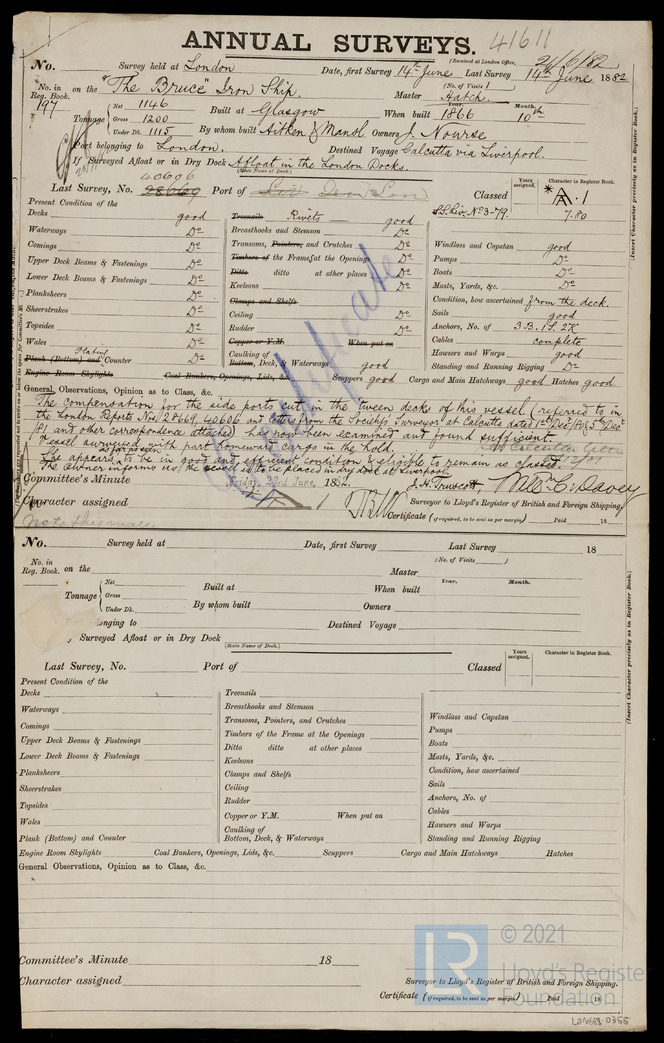 ANNUAL SURVEYS. 41611
(Received at London Office, 24/6/82)
No. Survey held at London Date, first Survey 14th June Last Survey 14th June 1882
(No. of Visits 1)
No. in Reg. Book. 197 on the "The Bruce" Iron Ship. Master Hatch.
Tonnage Net 1146 Built at Glasgow When built Year. 1866 Month. 10th
Gross 1200
Under Dk. 1115 By whom built Aitken & Mansl Owners J. Nourse
Port belonging to London. Destined Voyage Calcutta via Liverpool.
If Surveyed Afloat or in Dry Dock Afloat in the London Docks.
(State Name of Dock.)
40606
Last Survey, No. 28669 Port of London Classed S.S. Liv. No. 3-79. Years assigned. Character in Register Book. *A.1 7.80
(Insert Character precisely as in Register Book.)
Present Condition of the
Decks good Treenails Rivets good
Waterways Do Breasthooks and Stemson Do Windlass and Capstan good
Comings Do Transoms, Pointers, and Crutches Do Pumps Do
Upper Deck Beams & Fastenings Do Timbers of the Frame at the Openings Do Boats Do
Lower Deck Beams & Fastenings Do Ditto ditto at other places Do Masts, Yards, &c. Do
Planksheers Do Keelsons Do Condition, how ascertained from the deck.
Sheerstrakes Do Clamps and Shelfs Sails good
Topsides Do Ceiling Do Anchors, No. of 3 B. 1 S. 2 K
Wales Do Rudder Do Cables complete
Plating
Plank (Bottom) and Counter Do Copper or Y.M. When put on Hawsers and Warps good
Caulking of Bottom, Deck, & Waterways good Standing and Running Rigging Do
Engine Room Skylights Coal Bunkers, Openings, Lids, &c. Scuppers good Cargo and Main Hatchways good Hatches good.
Certificate
General Observations, Opinion as to Class, &c.
The compensation for the side ports cut in the tween decks of this vessel (referred to in
the London Reports Nos 28669, 40606 and letters from the Society's Surveyor at Calcutta dated 1st Dec/80 & 5th Dec
/81 and other correspondence attached) has now been examined and found sufficient.
Vessel surveyed with part homeward cargo in the hold.
She appears as far as seen to be in good and efficient condition & eligible to remain as classed.
The owner informs us the vessel is to be placed in dry dock at Liverpool.
Committee's Minute Friday, 23rd June, 1882 J. H. Truscott, Wm C. Davey
Character assigned Surveyor to Lloyd's Register of British and Foreign Shipping.
Certificate (if required, to be sent as per margin) Paid 18
Note this
No. Survey held at Date, first Survey Last Survey 18
(No. of Visits )
No. in Reg. Book. on the Master
Tonnage Net Built at When built Year. Month.
Gross
Under Dk. By whom built Owners
onging to Destined Voyage
Surveyed Afloat or in Dry Dock
(State Name of Dock.)
Last Survey, No. Port of Classed Years assigned. Character in Register Book.
(Insert Character precisely as in Register Book.)
Present Condition of the
Decks Treenails
Waterways Breasthooks and Stemson Windlass and Capstan
Comings Transoms, Pointers, and Crutches Pumps
Upper Deck Beams & Fastenings Timbers of the Frame at the Openings Boats
Lower Deck Beams & Fastenings Ditto ditto at other places Masts, Yards, &c.
Planksheers Keelsons Condition, how ascertained
Sheerstrakes Clamps and Shelfs Sails
Topsides Ceiling Anchors, No. of
Wales Rudder Cables
Plank (Bottom) and Counter Copper or Y.M. When put on Hawsers and Warps
Caulking of Bottom, Deck, & Waterways Standing and Running Rigging
Engine Room Skylights Coal Bunkers, Openings, Lids, &c. Scuppers Cargo and Main Hatchways Hatches
General Observations, Opinion as to Class, &c.
Committee's Minute 18
Character assigned
Surveyor to Lloyd's Register of British and Foreign Shipping.
Certificate (if required, to be sent as per margin) Paid 18
LR © 2021
Lloyd's Register
Foundation
LON668-0355